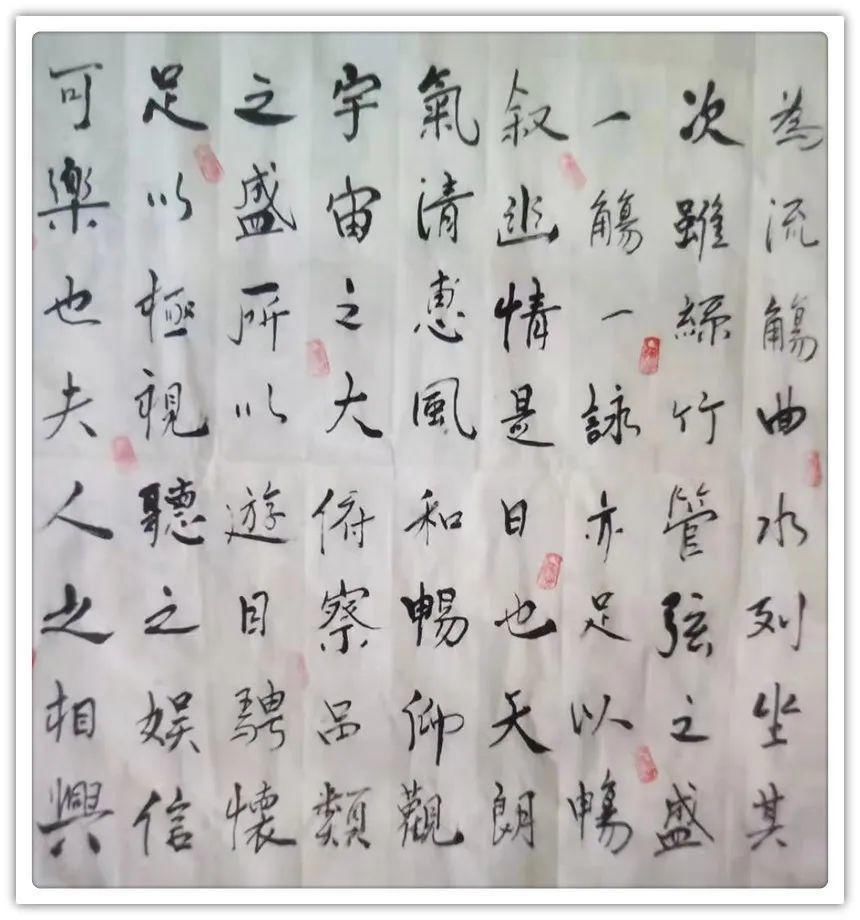 為流觴曲水列坐其
次雖絲竹管弦之盛
一觴一詠亦足以暢
叙幽情是日也天朗
氣清惠風和暢仰觀
宇宙之大俯察品類
之盛所以遊目騁懷
足以極視聽之娛信
可樂也夫人之相與